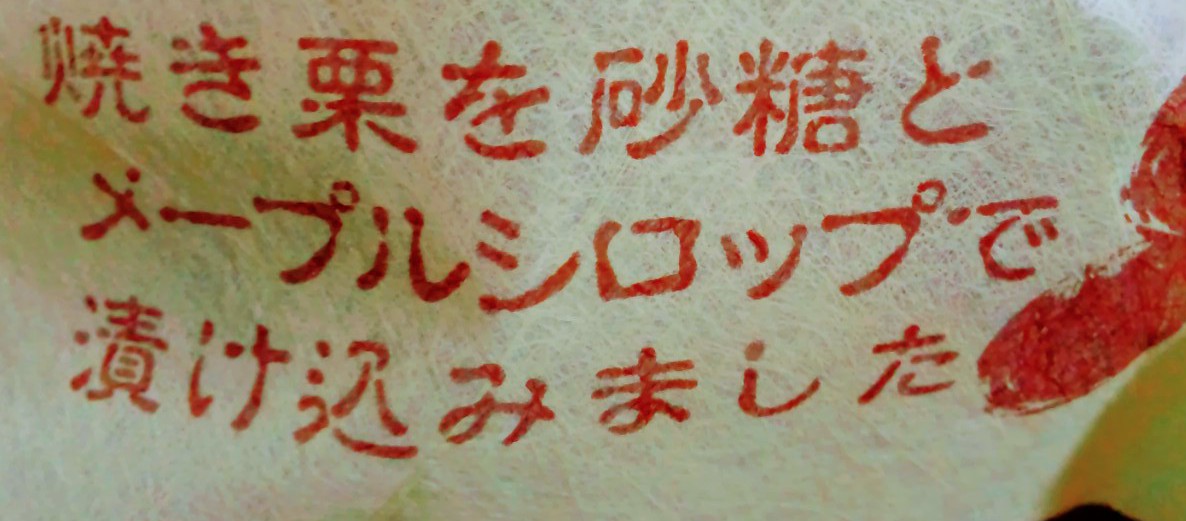 焼き栗を砂糖と
メープルシロップで
漬け込みました